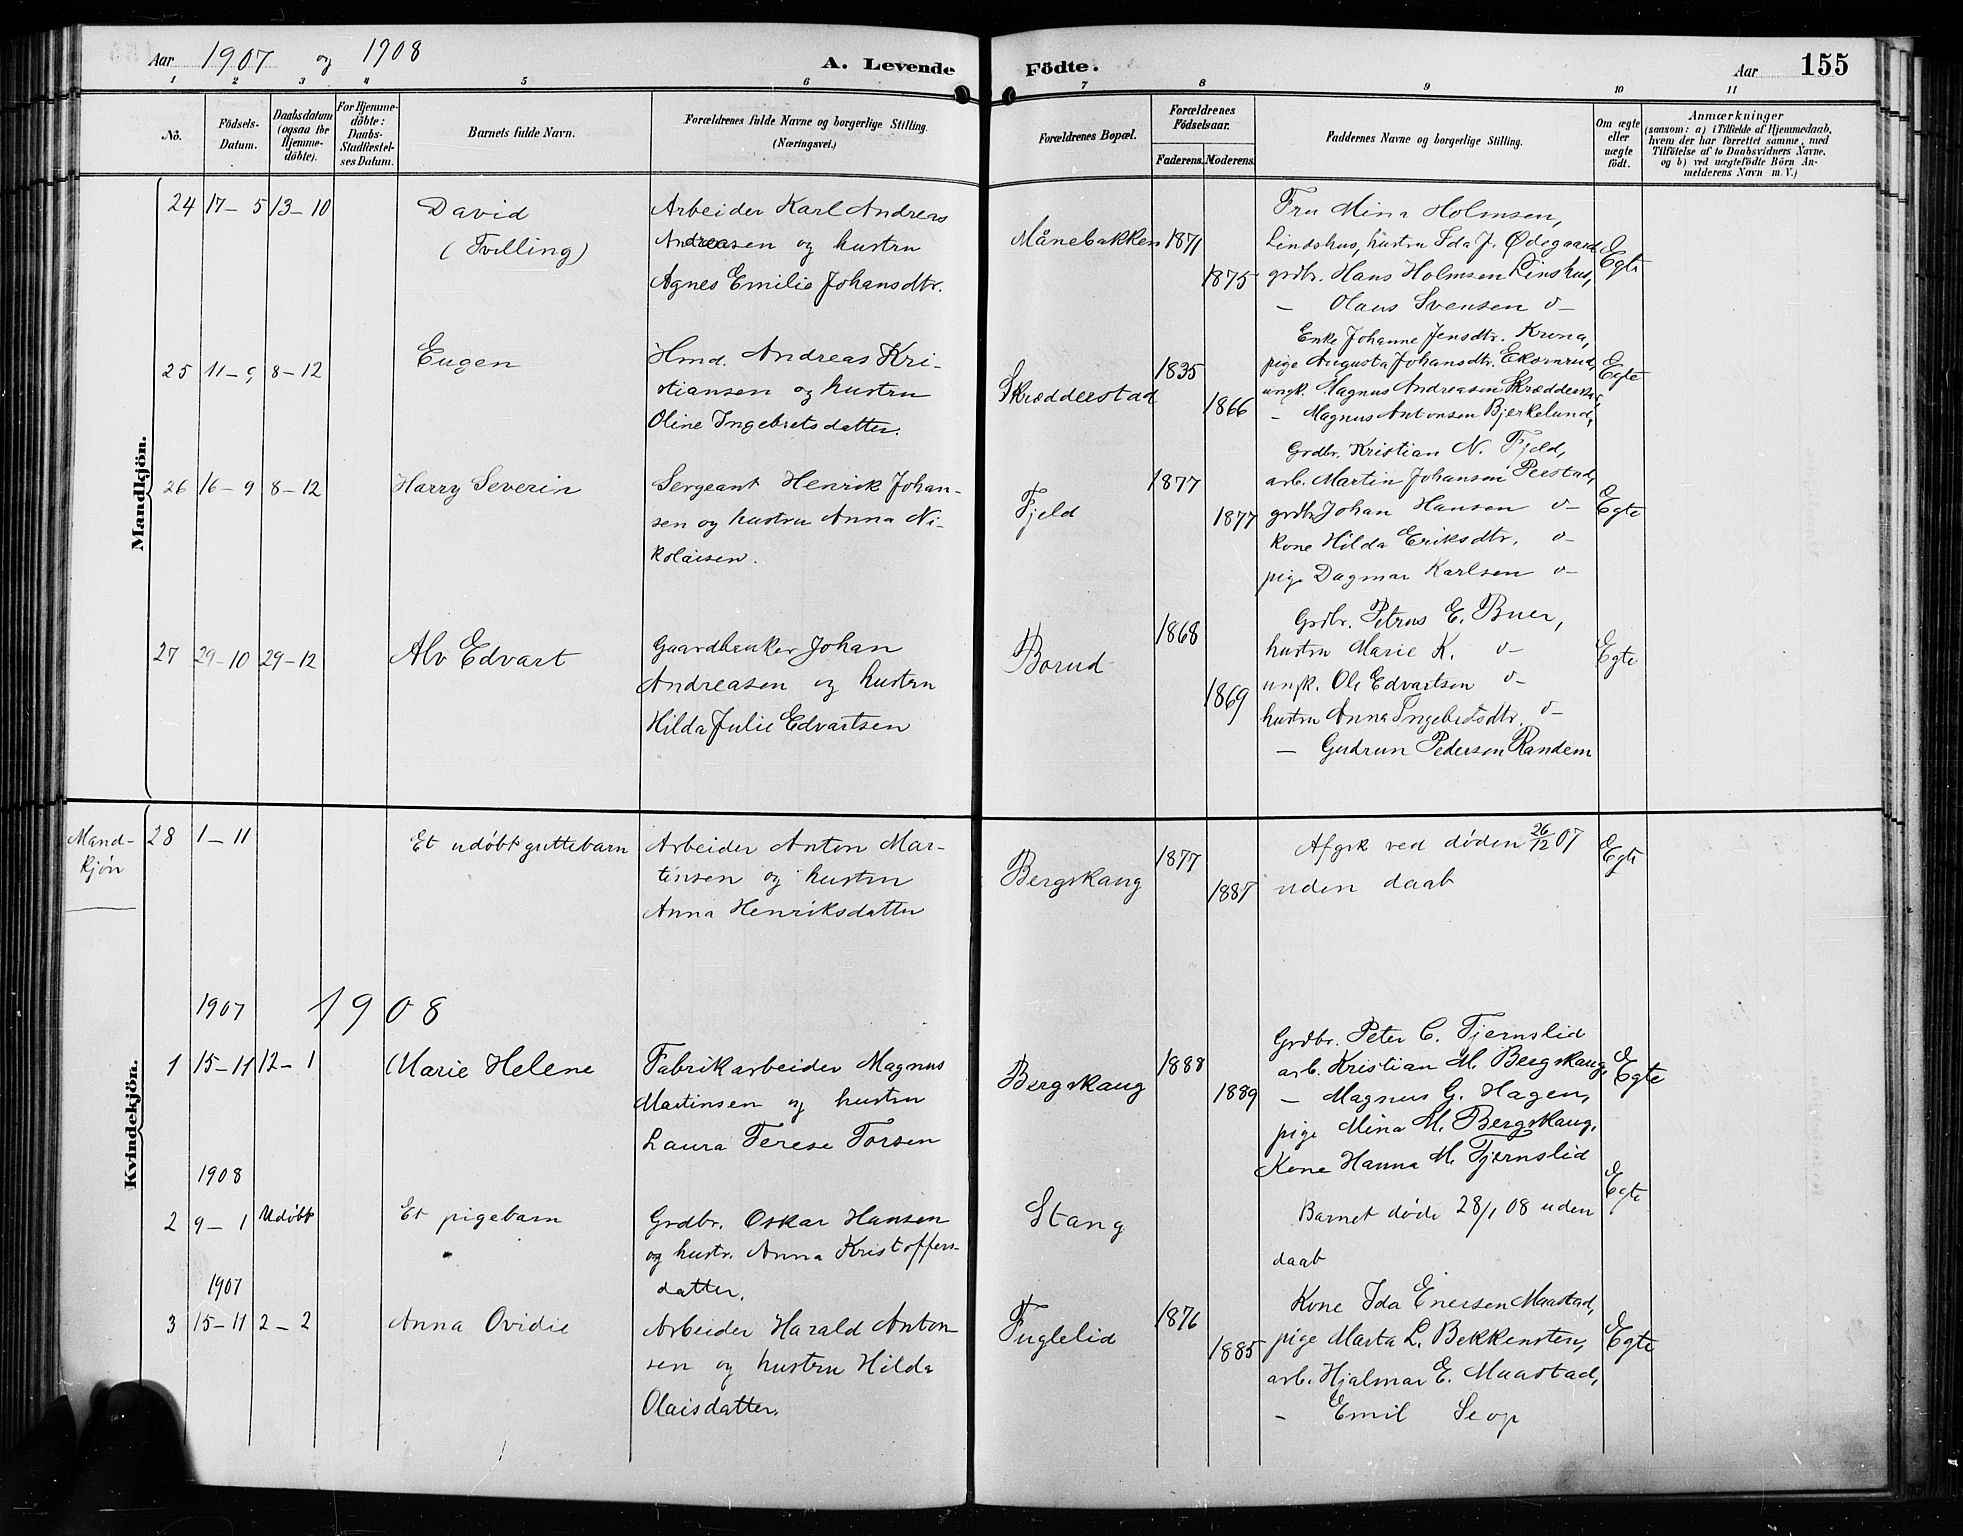 Aar 1907 og 1908 A. Levende Födte. Aar 155
1 2 3 4 5 6 7 8 9 10 11
No. Födsels-Datum. Daabsdatum (ogsaa for Hjemme-döbte). For Hjemme-döbte: Daabs-Stadfæstel-ses Datum. Barnets fulde Navn. Forældrenes fulde Navne og borgerlige Stilling. (Næringsvei.) Forældrenes Bopæl. Forældrenes Födselsaar. Faderens. Moderens. Faddernes Navne og borgerlige Stilling. Om ægte eller uægte födt. Anmærkninger (saasom: a) i Tilfælde af Hjemmedaab, hvem der har forrettet samme, med Tilföielse af to Daabsvidners Navne, og b) ved uægtefödte Börn An-melderens Navn m. V.)
Mandkjön.
24 17-5 13-10 David Arbeider Karl Andreas Månebakken 1871 Fru Mina Holmsen,
(Tvilling) Andreasen og hustru Lindshus, hustru Ida J. Ødegaard Egte
Agnes Emilie Johansdtr. 1875 grdbr. Hans Holmsen Linshus,
— Olaus Svensen o-
25 11-9 8-12 Eugen Hmd. Andreas Kri- Skrædderstad 1835 Enke Johanne Jensdtr. Krona,
stiansen og hustru pige Augusta Johansdtr. Ekornrud, Egte
Oline Ingebretsdatter. 1866 ungk. Magnus Andreasen Skrædderstad,
— Magnus Antonsen Bjerkelund,
26 16-9 8-12 Harry Severin Sergeant Henrik Johan- Fjeld 1877 Grdbr. Kristian N. Fjeld,
sen og hustru Anna Ni- arb. Martin Johansen Perstad, Egte
kolaisen. 1877 grdbr. Johan Hansen o-
kone Hilda Eriksdtr. o-
pige Dagmar Karlsen o-
27 29-10 29-12 Alv Edvart Gaardbruker Johan Borud 1868 Grdbr. Petrus E. Buer,
Andreasen og hustru hustru Marie K. o- Egte
Hilda Julie Edvartsen 1869 ungk. Ole Edvartsen o-
hustru Anna Ingebretsdtr. o-
— Gudrun Pedersen Randem
Mand-kjön 28 1-11 Et udøbt guttebarn Arbeider Anton Mar- Bergskaug 1877 Afgik ved døden 26/12 07 Egte
tinsen og hustru 1887 uden daab
Anna Henriksdatter
1907 1908
Kvindekjön.
1 15-11 12-1 Marie Helene Fabrikarbeider Magnus Bergskaug 1888 Grdbr. Peter C. Tjernslid
Martinsen og hustru 1889 arb. Kristian M. Bergskaug, Egte
Laura Terese Torsen — Magnus G. Hagen,
pige Mina M. Bergskaug,
Kone Hanna M. Tjernslid
1908
2 9-1 Udøbt Et pigebarn Grdbr. Oskar Hansen Stang Barnet døde 28/1 08 uden Egte
og hustr. Anna Kristoffers- daab
datter.
1907
3 15-11 2-2 Anna Ovidie Arbeider Harald Anton- Fuglelid 1876 Kone Ida Enersen Maastad,
sen og hustru Hilda 1885 pige Marta L. Bekkensten, Egte
Olaisdatter. arb. Hjalmar E. Maastad,
— Emil Seop